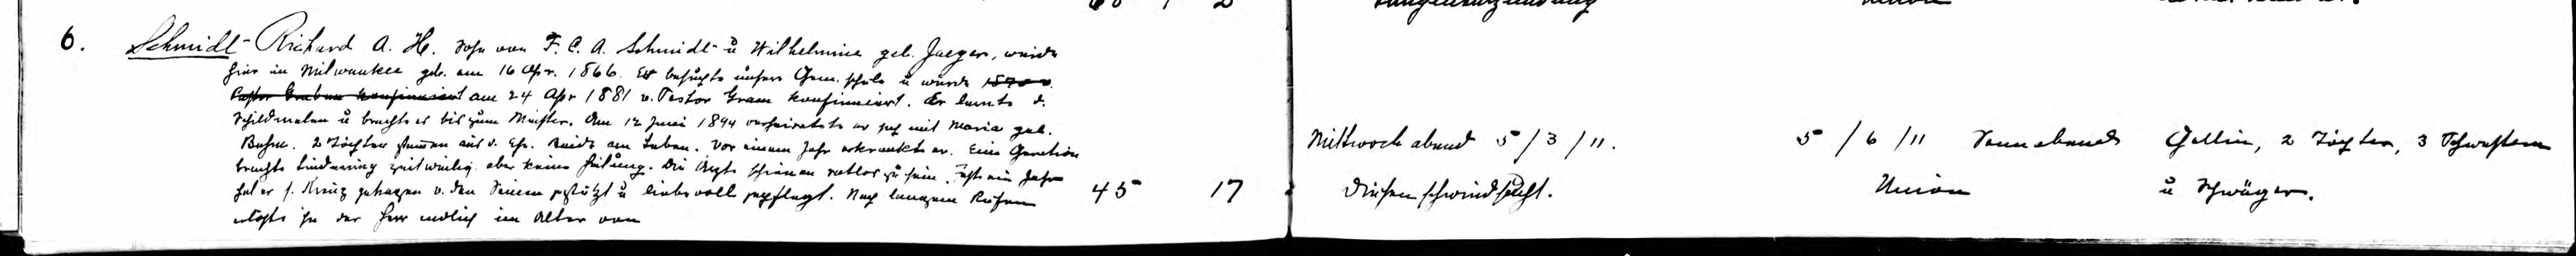 6. Schmidt Richard A. H. Sohn von F. C. A. Schmidt u Wilhelmine geb. Jaeger, wurde
hier in Milwaukee geb. am 16 Apr. 1866. Er besuchte unsere Gem. schule u wurde
am 24 Apr 1881 v. Pastor Gram konfirmiert. Er lernte d.
Schildmalen u brachte es bis zum Meister. Am 12 Juni 1894 verheiratete er sich mit Maria geb.
2 Töchter stammen aus d. Ehe. Beide am Leben. Vor einem Jahr erkrankte er. Eine Operation
brachte Linderung zeitweilig aber keine Heilung. Die Ärzte schienen ratlos zu sein. Fast ein Jahr
hat er s. Kreuz getragen v. den Seinen gestützt u liebevoll gepflegt. Nach langem Rufen
erlöste ihn der Herr endlich im Alter von
45 17
Mittwoch abend 5/3/11. 5/6/11 Sonnabend Gattin, 2 Töchter, 3 Schwestern
Drüsenschwindsucht. Union u Schwäger.